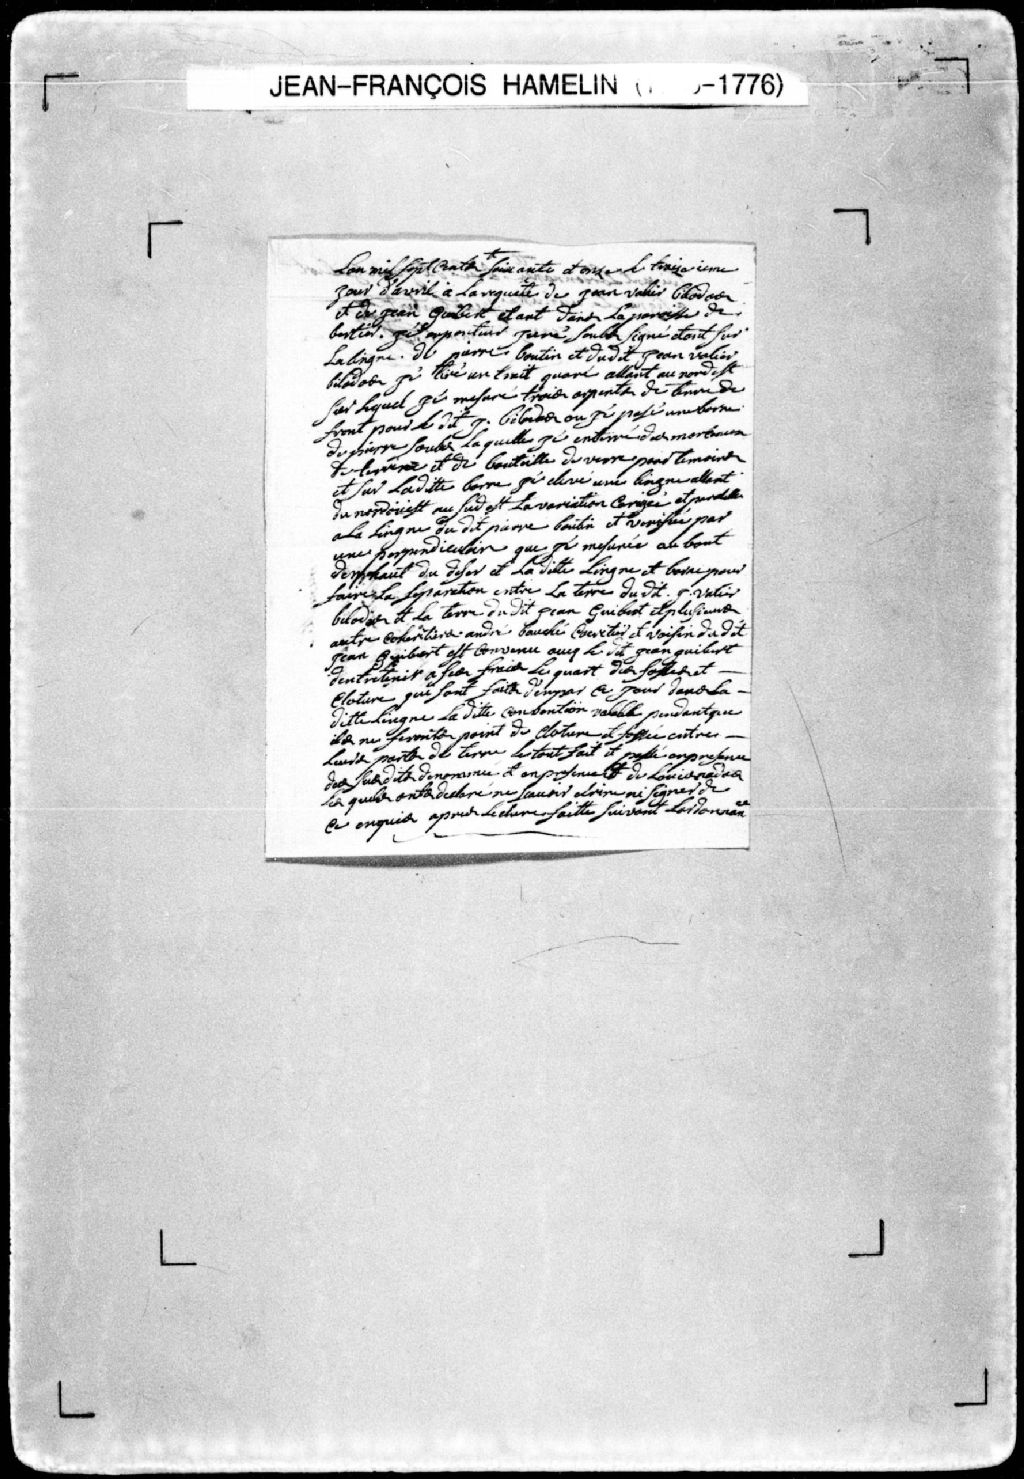 JEAN-FRANÇOIS HAMELIN ( -1776)
Lan mil sept Cents soixante et onze le troisieme
jour d'avril a la requête de jean valier bilodos
et de jean Guibert étant dans la paroisse de
bertier. gé arpenteur juré soubs signé étant sur
La lingne de pierre boutin et dudit jean valier
bilodos gé tiré un trait quaré allant au nordest
sur lequel gé mesuré trois arpents de terre de
front pour le dit j. bilodos ou gé posé une borne
de pierre soubs laquelle gé enterré des morceaux
de terrine et de bouteille de verre pour temoins
et sur Laditte borne gé elevé une lingne allant
du nordouest au sudest La variation Corigée et paralelle
a La Lingne du dit pierre boutin et verifiée par
une perpendiculair que gé mesurée au bout
denhaut du deser et La ditte Lingne et borne pour
faire La separation entre La terre du dit. j. valier
bilodos et La terre du dit jean Guibert et plusieurs
autre Coheritiers andré bouché Cheritier et voisin du dit
jean Guibert est Convenu avec le dit jean guibert
dentretenir a ses frais Le quart des fossés et
Cloture qui sont faits denpar ce jour dans La
ditte Lingne La ditte Convention valable pendant que
ils ne feronts point de Cloture et fossée entres
Leurs parts de terre Le tout fait et passé enpresence
des sus dits denommé et enpresence de Louis nados
Les quels onts declare ne scavoir ecrire ni signer de
Ce enquis apres Lecture faitte suivant Lordonnance